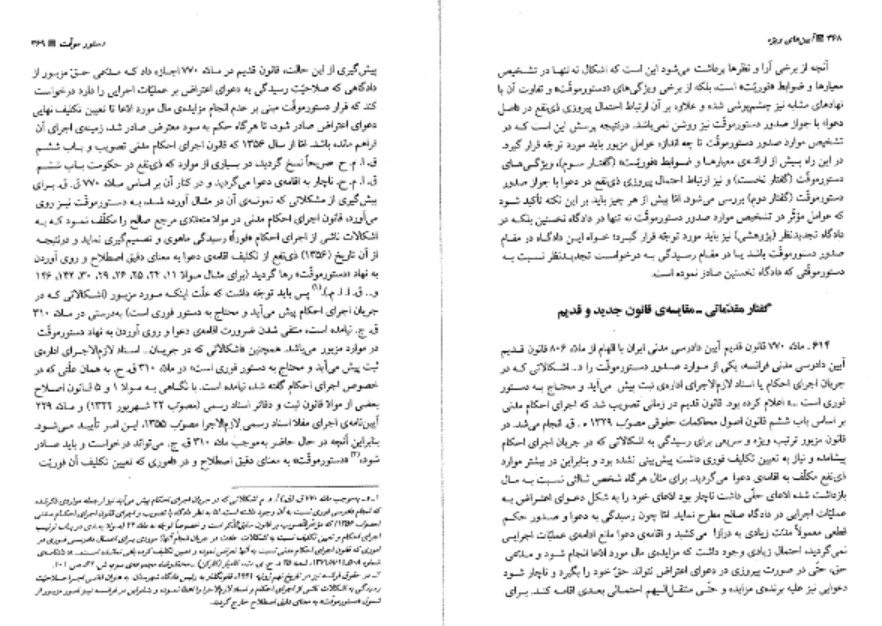 ۳۶۸ آیین‌های ویژه
آنچه از برخی آرا و نظرها برداشت می‌شود این است که اشکال نه تنها در تشخیص
معیارها و ضوابط «فوریّت» است، بلکه از برخی ویژگی‌های «دستورموقّت» و تفاوت آن با
نهادهای مشابه نیز چشم‌پوشی شده و علاوه بر آن ارتباط احتمال پیروزی ذی‌نفع در «اصل
دعوا» با جواز صدور دستورموقّت نیز روشن نمی‌باشد. درنتیجه پرسش این است که در
تشخیص موارد صدور دستورموقّت تا چه اندازه عوامل مزبور باید مورد توجّه قرار گیرد.
در این راه پیش از ارائه‌ی معیارها و ضوابط «فوریّت» (گفتار سوم)، ویژگی‌های
دستورموقّت (گفتار نخست) و نیز ارتباط احتمال پیروزی ذی‌نفع در دعوا با جواز صدور
دستورموقّت (گفتار دوم) بررسی می‌شود. امّا پیش از هر چیز باید بر این نکته تأکید شود
که عوامل مؤثّر در تشخیص موارد صدور دستورموقّت نه تنها در دادگاه نخستین بلکه در
دادگاه تجدیدنظر (پژوهشی) نیز باید مورد توجّه قرار گیرد؛ خواه این دادگاه در مقام
صدور دستورموقّت باشد یا در مقام رسیدگی به درخواست تجدیدنظر نسبت به
دستورموقّتی که دادگاه نخستین صادر نموده است.
گفتار مقدّماتی ـ مقایسه‌ی قانون جدید و قدیم
۶۱۴ـ ماده ۷۷۰ قانون قدیم آیین دادرسی مدنی ایران با الهام از ماده ۸۰۶ قانون قدیم
آیین دادرسی مدنی فرانسه، یکی از موارد صدور دستورموقّت را «... اشکالاتی که در
جریان اجرای احکام یا اسناد لازم‌الاجرای اداره‌ی ثبت پیش می‌آید و محتاج به دستور
فوری است ...» اعلام کرده بود. قانون قدیم در زمانی تصویب شد که اجرای احکام مدنی
بر اساس باب ششم قانون اصول محاکمات حقوقی مصوب ۱۳۲۹ ه‍ . ق. انجام می‌شد. در
قانون مزبور ترتیب ویژه و سریعی برای رسیدگی به اشکالاتی که در جریان اجرای احکام
پیشامده و نیاز به تعیین تکلیف فوری داشت پیش‌بینی نشده بود و بنابراین در بیشتر موارد
ذی‌نفع مکلّف به اقامه‌ی دعوا می‌گردید. برای مثال هرگاه شخص ثالثی نسبت به مال
بازداشت شده ادّعای حقّی داشت ناچار بود ادّعای خود را به شکل دعوای اعتراض به
عملیّات اجرایی در دادگاه صالح مطرح نماید. امّا چون رسیدگی به دعوا و صدور حکم
قطعی معمولاً مدّت زیادی به درازا می‌کشید و اقامه‌ی دعوا مانع ادامه‌ی عملیّات اجرایی
نمی‌گردید، احتمال زیادی وجود داشت که مزایده‌ی مال مورد ادّعا انجام شود و مدّعی
حق، حتّی در صورت پیروزی در دعوای اعتراض نتواند حقّ خود را بگیرد و ناچار شود
دعوایی نیز علیه برنده‌ی مزایده و حتّی منتقل‌الیهم احتمالی بعدی اقامه کند. برای
دستور موقّت ۳۶۹
پیش‌گیری از این حالت، قانون قدیم در ماده ۷۷۰ اجازه داد که مدّعی حق مزبور از
دادگاهی که صلاحیّت رسیدگی به دعوای اعتراض بر عملیّات اجرایی را دارد درخواست
کند که قرار دستورموقّت مبنی بر عدم انجام مزایده‌ی مال مورد ادّعا تا تعیین تکلیف نهایی
دعوای اعتراض صادر شود، تا هرگاه حکم به سود معترض صادر شد، زمینه‌ی اجرای آن
فراهم مانده باشد. امّا از سال ۱۳۵۶ که قانون اجرای احکام مدنی تصویب و باب ششم
ق. ا. م. ح. صریحاً نسخ گردید، در بسیاری از موارد که ذی‌نفع در حکومت باب ششم
ق. ا. م. ح. ناچار به اقامه‌ی دعوا می‌گردید و در کنار آن بر اساس ماده ۷۷۰ ق. ق. برای
پیش‌گیری از مشکلاتی که نمونه‌ی آن در مثال آورده شد، به دستورموقّت نیز روی
می‌آورد، قانون اجرای احکام مدنی در موادّ متعدّدی مرجع صالح را مکلّف نمود که به
اشکالات ناشی از اجرای احکام «فوراً» رسیدگی ماهوی و تصمیم‌گیری نماید و درنتیجه
از آن تاریخ (۱۳۵۶) ذی‌نفع از تکلیف اقامه‌ی دعوا به معنای دقیق اصطلاح و روی آوردن
به نهاد «دستورموقّت» رها گردید (برای مثال مواد ۱۱، ۲۴، ۲۵، ۲۶، ۲۹، ۳۰، ۱۴۲، ۱۴۶
و... ق. ا. ا. م.). پس باید توجّه داشت که علّت اینکه مورد مزبور (اشکالاتی که در
جریان اجرای احکام پیش می‌آید و محتاج به دستور فوری است) به‌درستی در ماده ۳۱۰
ق. ج. نیامده است، منتفی شدن ضرورت اقامه‌ی دعوا و روی آوردن به نهاد دستورموقّت
در موارد مزبور می‌باشد. همچنین «اشکالاتی که در جریان... اسناد لازم‌الاجرای اداره‌ی
ثبت پیش می‌آید و محتاج به دستور فوری است» در ماده ۳۱۰ ق. ج. به همان علّتی که در
خصوص اجرای احکام گفته شد، نیامده است. با نگاهی به مواد ۱ و ۵ قانون اصلاح
بعضی از موادّ قانون ثبت و دفاتر اسناد رسمی (مصوّب ۲۲ شهریور ۱۳۲۲) و ماده ۲۲۹
آیین‌نامه‌ی اجرای مفاد اسناد رسمی لازم‌الاجرا مصوّب ۱۳۵۵، این امر تأیید می‌شود.
بنابراین آنچه در حال حاضر به‌موجب ماده ۳۱۰ ق. ج. می‌تواند درخواست و باید صادر
شود، «دستورموقّت» به معنای دقیق اصطلاح و در «اموری که تعیین تکلیف آن فوریّت